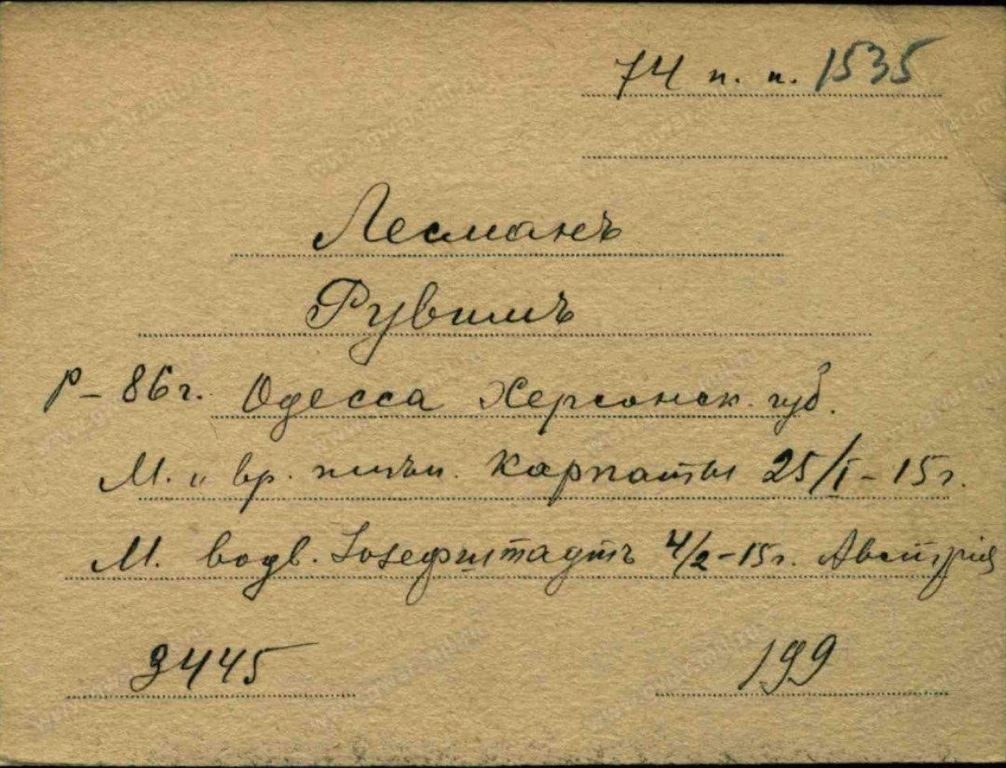 74 п. п. 1535
Лесманъ
Рувимъ
Р - 86 г. Одесса Херсонск. губ.
М. и вр. плѣн. Карпаты 25/I - 15 г.
М. водв. Іозефштадтъ 4/2 - 15 г. Австрія
3445
199